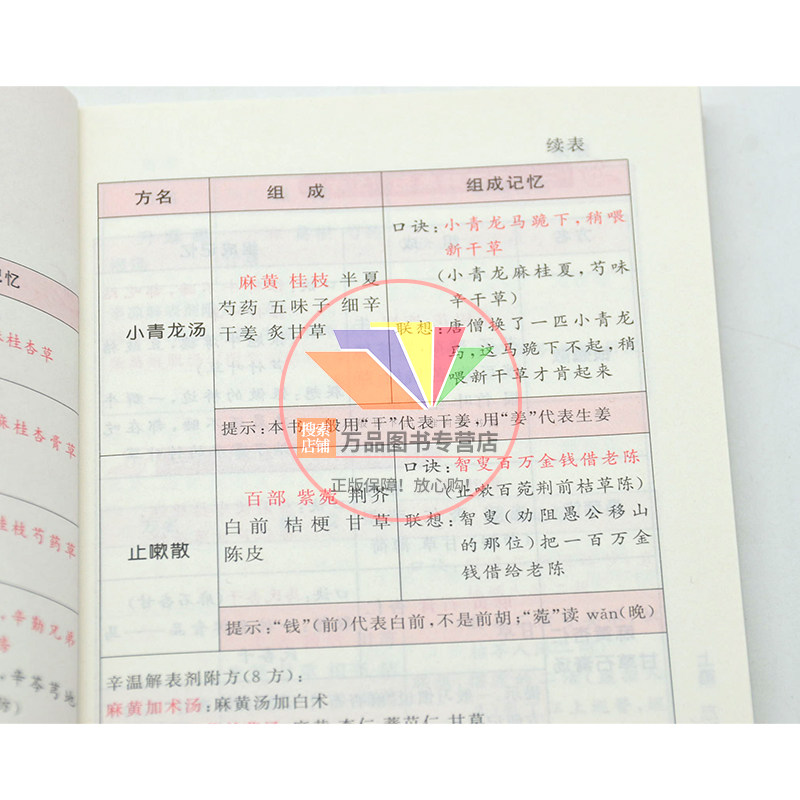 续表
方名 组成 组成记忆
小青龙汤
麻黄 桂枝 半夏
芍药 五味子 细辛
干姜 炙甘草
口诀:小青龙马跪下,稍喂
新干草
(小青龙麻桂夏,芍味
辛干草)
联想:唐僧换了一匹小青龙
马,这马跪下不起,稍
喂新干草才肯起来
提示:本书一般用“干”代表干姜,用“姜”代表生姜
止嗽散
百部 紫菀 荆芥
白前 桔梗 甘草
陈皮
口诀:智叟百万金钱借老陈
(止嗽百菀荆前桔草陈)
联想:智叟(劝阻愚公移山
的那位)把一百万金
钱借给老陈
提示:“钱”(前)代表白前,不是前胡;“菀”读 wǎn(晚)
辛温解表剂附方(8方):
麻黄加术汤:麻黄汤加白术
麻黄 杏仁 薏苡仁 甘草
记忆
桂杏草
麻桂杏膏草
桂枝芍药草
辛勤兄弟
辛苓芎地
防)
搜索
店铺
万品图书专营店
正版保障!放心购!